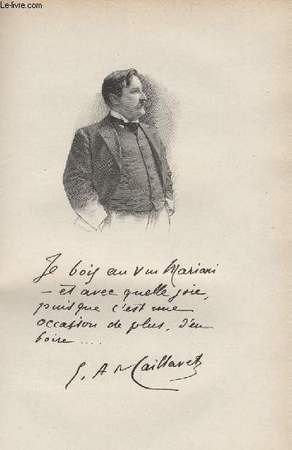 Le-livre.com
Je bois au vin Mariani
– et avec quelle joie,
puisque c'est une
occasion de plus, d'en
boire ....
G. A de Caillavet